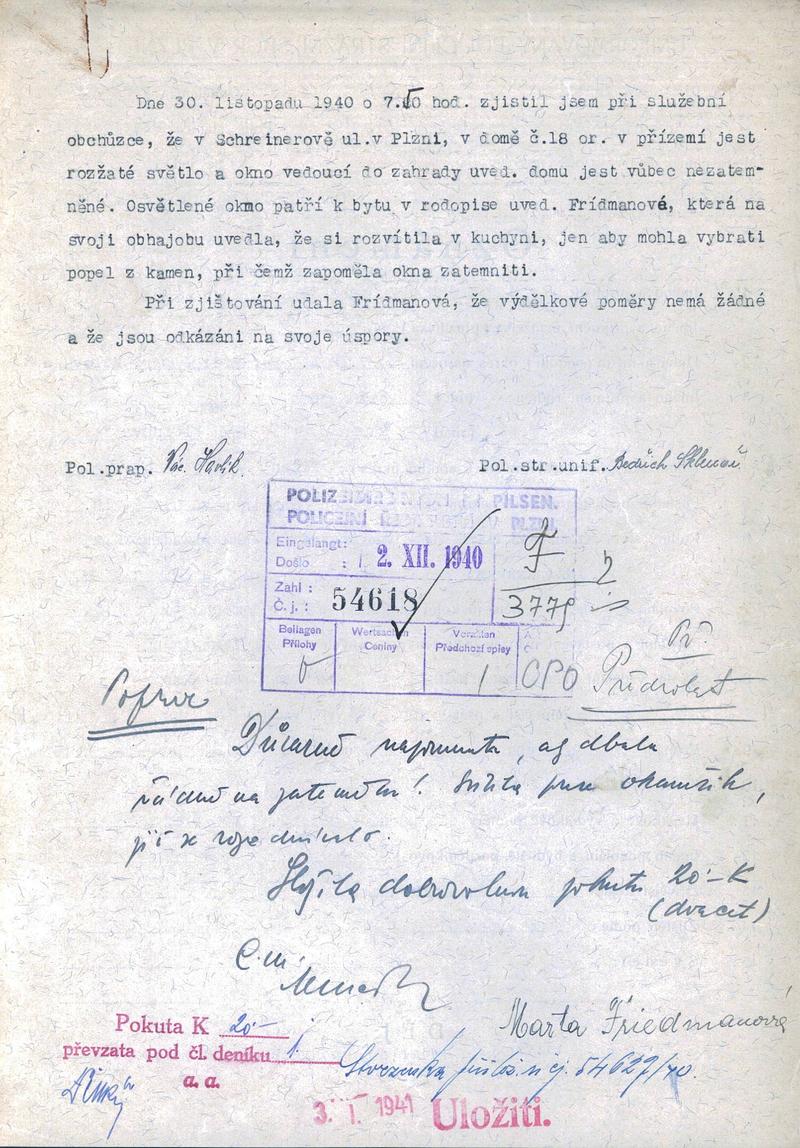 Dne 30. listopadu 1940 o 7.50 hod. zjistil jsem při služební
obchůzce, že v Schreinerově ul.v Plzni, v domě č.18 or. v přízemí jest
rozžaté světlo a okno vedoucí do zahrady uved. domu jest vůbec nezatem-
něné. Osvětlené okno patří k bytu v rodopise uved. Frídmanové, která na
svoji obhajobu uvedla, že si rozvítila v kuchyni, jen aby mohla vybrati
popel z kamen, při čemž zapoměla okna zatemniti.
Při zjištování udala Frídmanová, že výdělkové poměry nemá žádné
a že jsou odkázáni na svoje úspory.
Pol.prap. Vác. Havlík. Pol.str.unif. Bedřich
PILSEN.
POLICEJNÍ V PLZNI.
Eingelangt:
Došlo : 2. XII. 1940
Zahl :
Č.j. : 54618
F
3779
Beilagen
Přílohy
Wertsachen
Ceniny
Vorakten
Předchozí spisy
1
Důrazně napomenuta, aby dbala
řádně na
již se rozednívalo.
Složila dobrovolnou pokutu 20·-K
(dvacet)
Marta Friedmanová
Pokuta K 20·-
převzata pod čl. deníku 1.
a. a.
54627/40.
3. I. 1941 Uložiti.